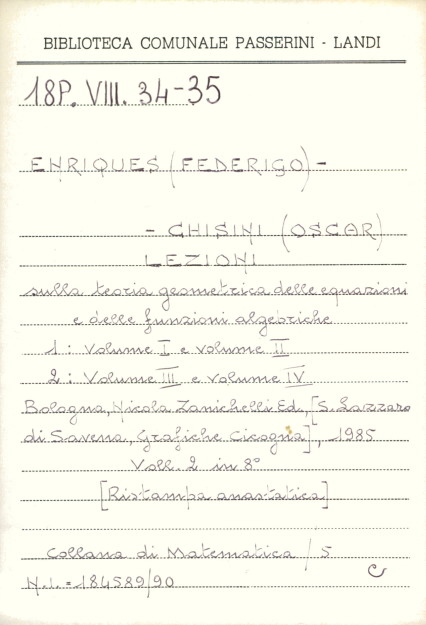 BIBLIOTECA COMUNALE PASSERINI - LANDI
18P. VIII. 34-35
ENRIQUES (FEDERIGO) -
- CHISINI (OSCAR)
LEZIONI
sulla teoria geometrica delle equazioni
e delle funzioni algebriche
1: Volume I e volume II
2: Volume III e volume IV
Bologna, Nicola Zanichelli Ed., [S. Lazzaro
di Savena, Grafiche Cicogna], 1985
Voll. 2 in 8°
[Ristampa anastatica]
Collana di Matematica / 5
N.i. = 184589/90
C